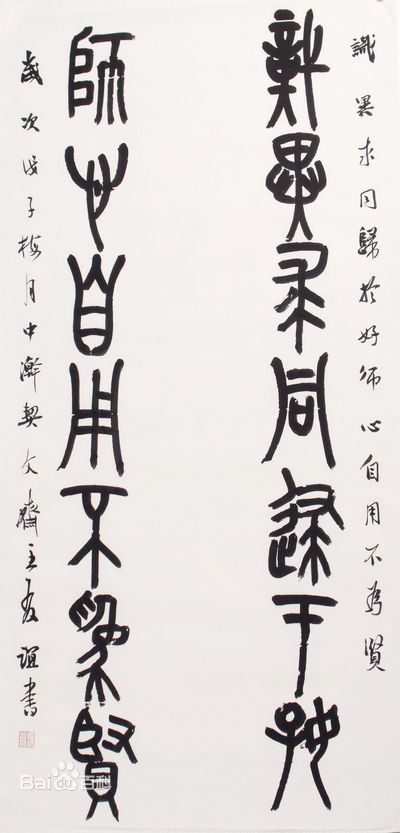 識異求同歸於好師心自用不為賢
識異求同歸于好
師心自用不為賢
歲次戊子梅月中澣契文齋主誼書
Bai百科